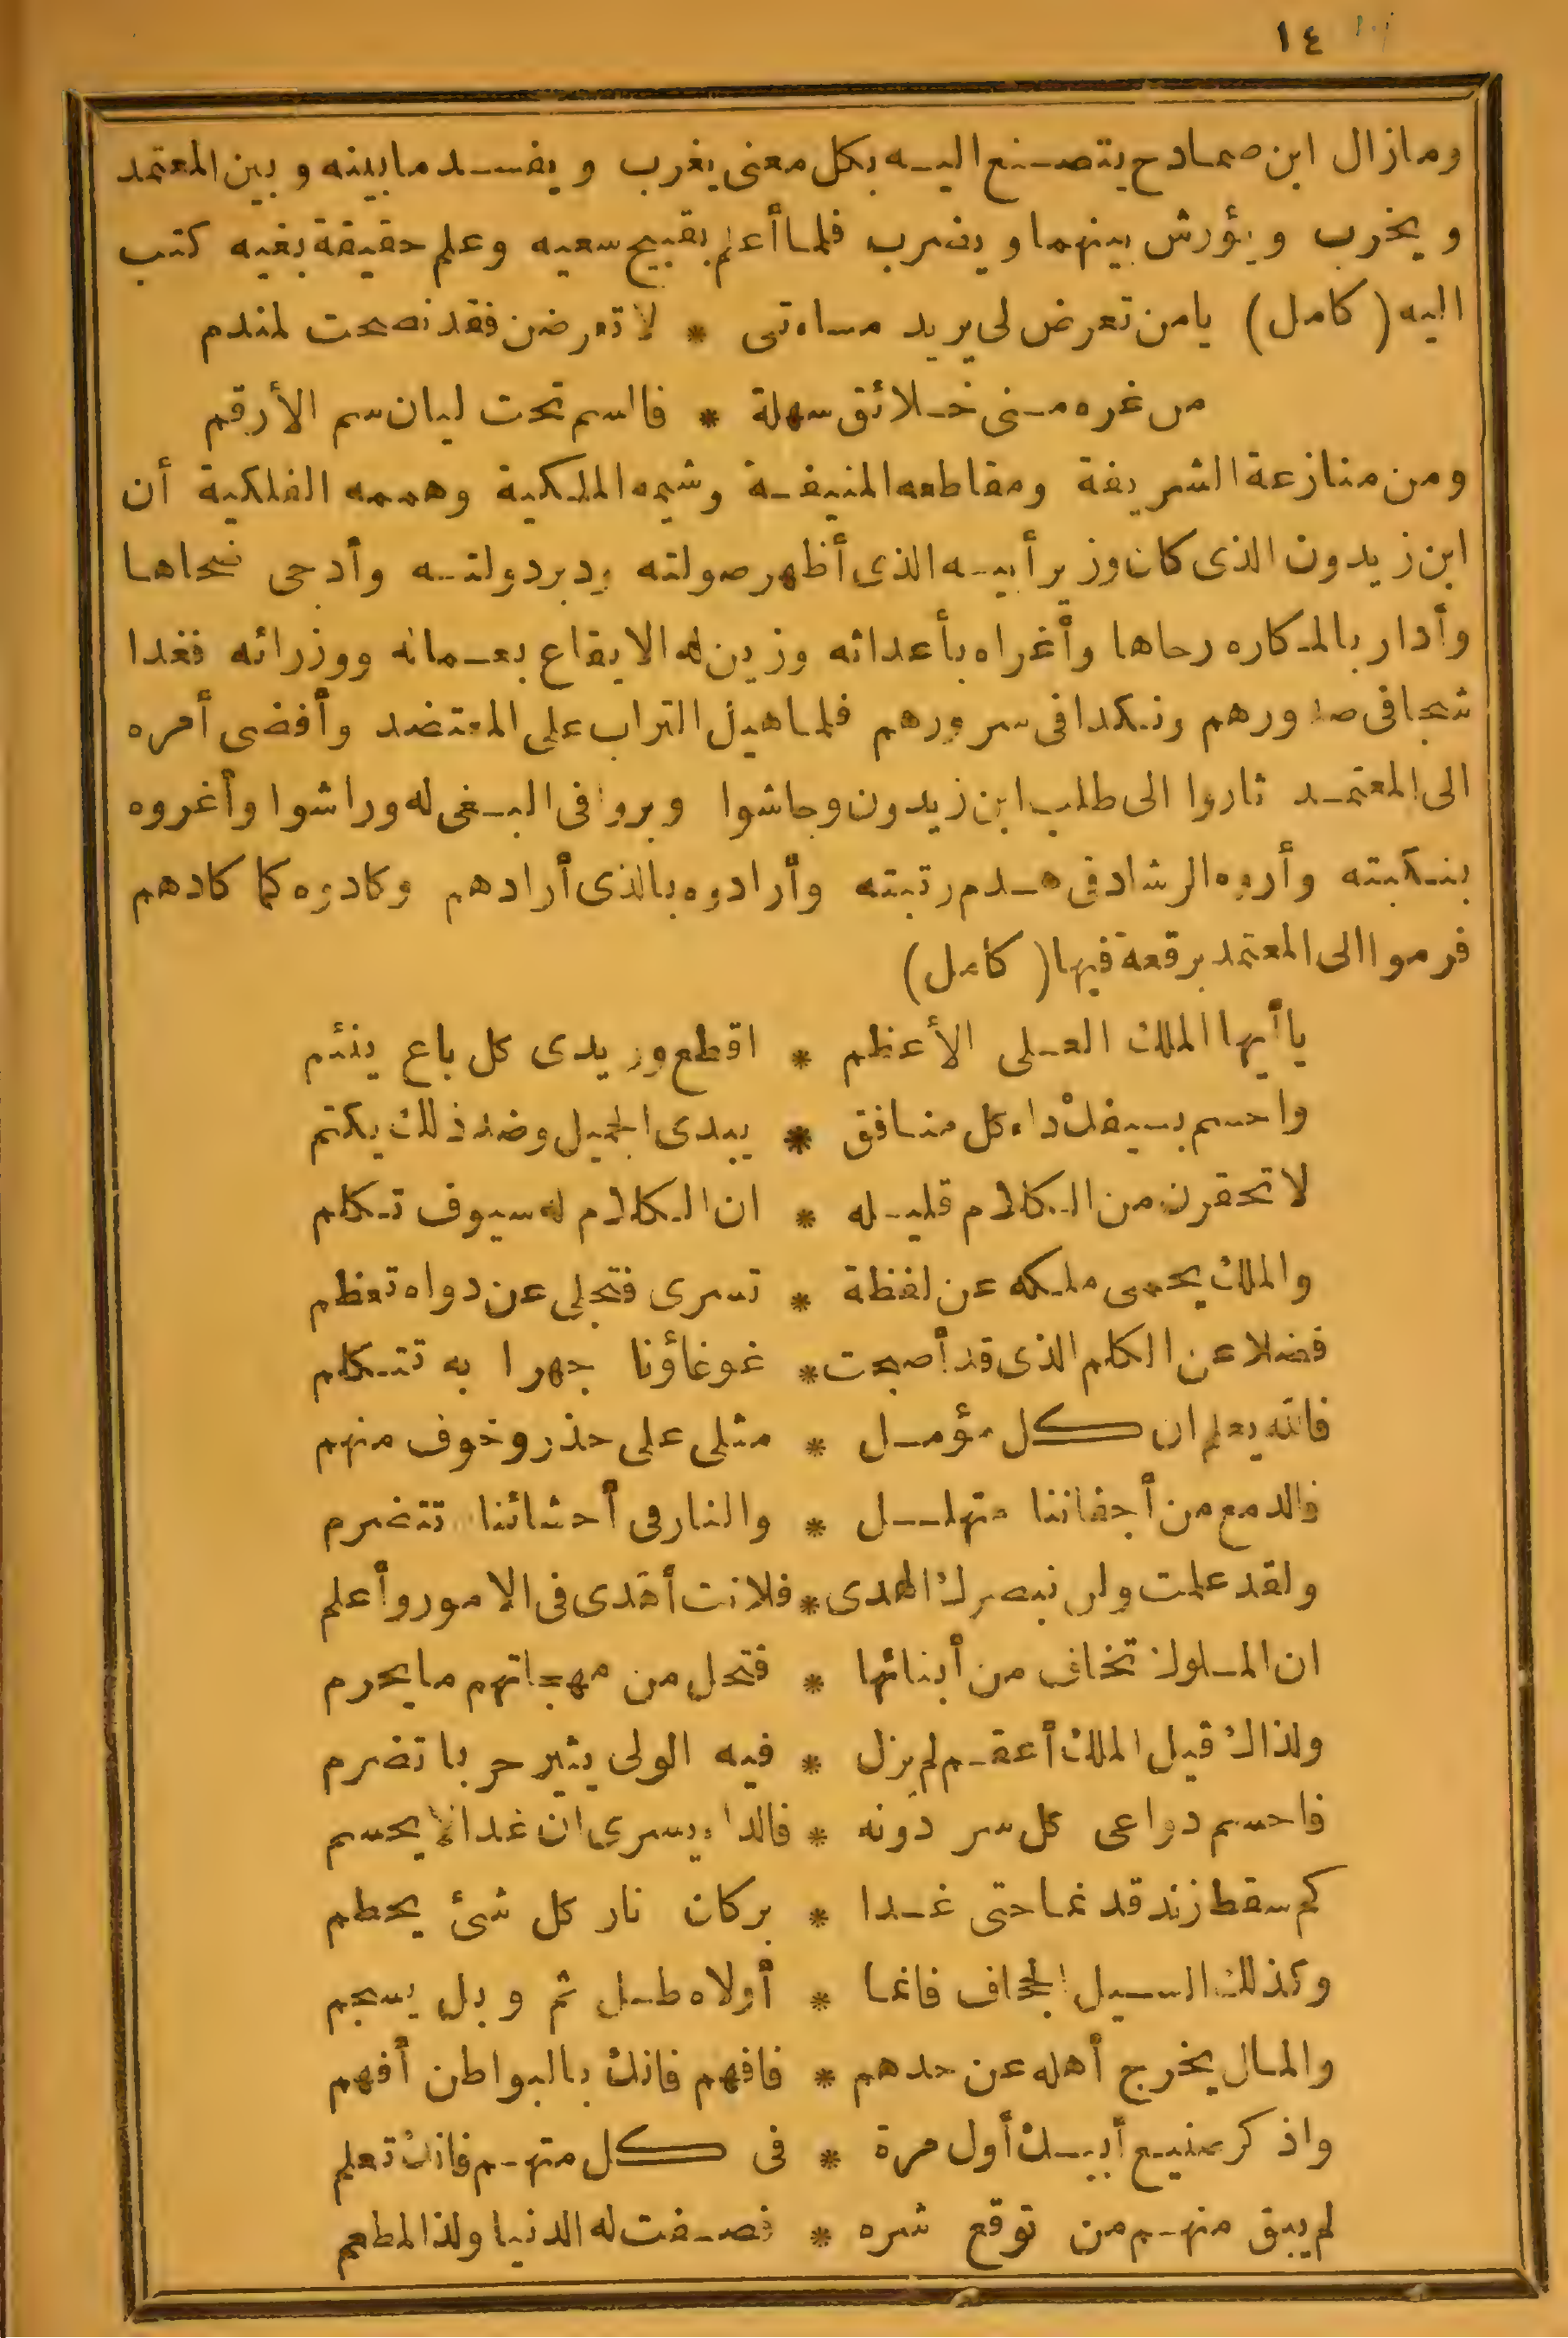 ١٤
ومازال ابن صمادح يتصنع اليه بكل معنى يغرب ويفسد مابينه وبين المعتمد
ويخرب ويؤرش بينهما ويضرب فلما أعلم بقبيح سعيه وعلم حقيقة بغيه كتب
اليه (كامل) يامن تعرض لى يريد مساءتى * لا تعرضن فقد نصحت لمندم
من غره منى خلائق سهلة * فالسم تحت ليان سم الأرقم
ومن منازعة الشريفة ومقاطعه المنيفة وشيمه الملكية وهممه الفلكية أن
ابن زيدون الذى كان وزير أبيه الذى أظهر صولته ودبر دولته وأدجى ضحاها
وأدار بالمكاره رحاها وأغراه بأعدائه وزين له الايقاع بعماله ووزرائه فغدا
شجا فى صدورهم ونكدا فى سرورهم فلما هيل التراب على المعتضد وأفضى أمره
الى المعتمد ثاروا الى طلب ابن زيدون وجاشوا وبروا فى البغى له وراشوا وأغروه
بنكبته وأروه الرشاد فى هدم رتبته وأرادوه بالذى أرادهم وكادوه كما كادهم
فرموا الى المعتمد برقعة فيها (كامل)
ياأيها الملك العلى الأعظم * اقطع وريدى كل باغ ينئم
واحسم بسيفك داء كل منافق * يبدى الجميل وضد ذلك يكتم
لا تحقرن من الكلام قليله * ان الكلام له سيوف تكلم
والملك يحمى ملكه عن لفظة * تسرى فتجلى عن دواه تعظم
فضلا عن الكلم الذى قد أصبحت * غوغاؤنا جهرا به تتكلم
فالله يعلم ان كل مؤمل * مثلى على حذر وخوف منهم
فالدمع من أجفاننا متهلل * والنار فى أحشائنا تتضرم
ولقد علمت ولن نبصرك الهدى * فلانت أهدى فى الامور وأعلم
ان الملوك تخاف من أبنائها * فتحل من مهجاتهم مايحرم
ولذاك قيل الملك أعقم لم يزل * فيه الولى يثير حربا تضرم
فاحسم دواعى كل سر دونه * فالداء يسرى ان غدا لا يحسم
كم سقط زند قد نما حتى غدا * بركان نار كل شئ يحطم
وكذلك السيل الجحاف فانما * أولاه طل ثم وبل يسجم
والمال يخرج أهله عن حدهم * فافهم فانك بالبواطن أفهم
واذكر صنيع أبيك أول مرة * فى كل متهم فانك تعلم
لم يبق منهم من توقع شره * فصفت له الدنيا ولذ المطعم